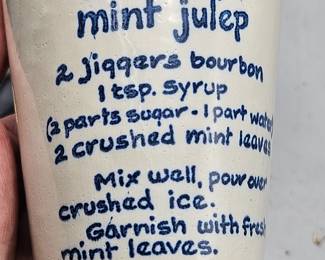 mint julep
2 jiggers bourbon
1 tsp. syrup
(2 parts sugar - 1 part water
2 crushed mint leaves
Mix well, pour over
crushed ice.
Garnish with fresh
mint leaves.